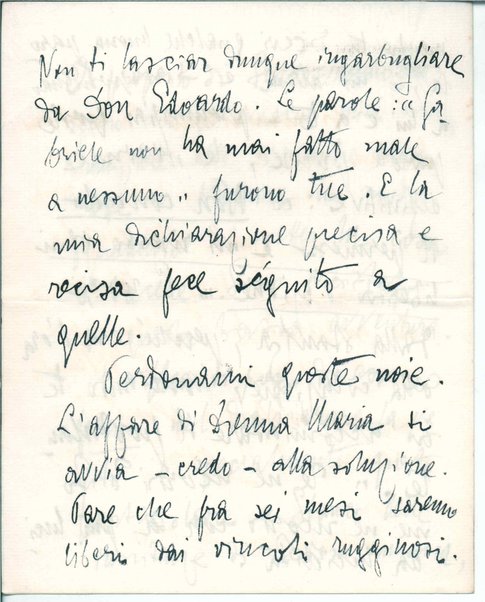 Non ti lasciar dunque ingarbugliare
da Don Edoardo. Le parole: "Ga-
briele non ha mai fatto male
a nessuno" furono tue. E la
mia dichiarazione precisa e
recisa fece séguito a
quelle.
Perdonami queste noie.
L'affare di Donna Maria si
avvia – credo – alla soluzione.
Pare che fra sei mesi saremo
liberi dai vincoli rugginosi.